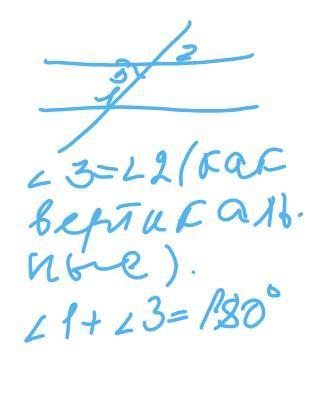 2
3
1
∠3=∠2(как
вертикаль-
ные).
∠1+∠3=180°